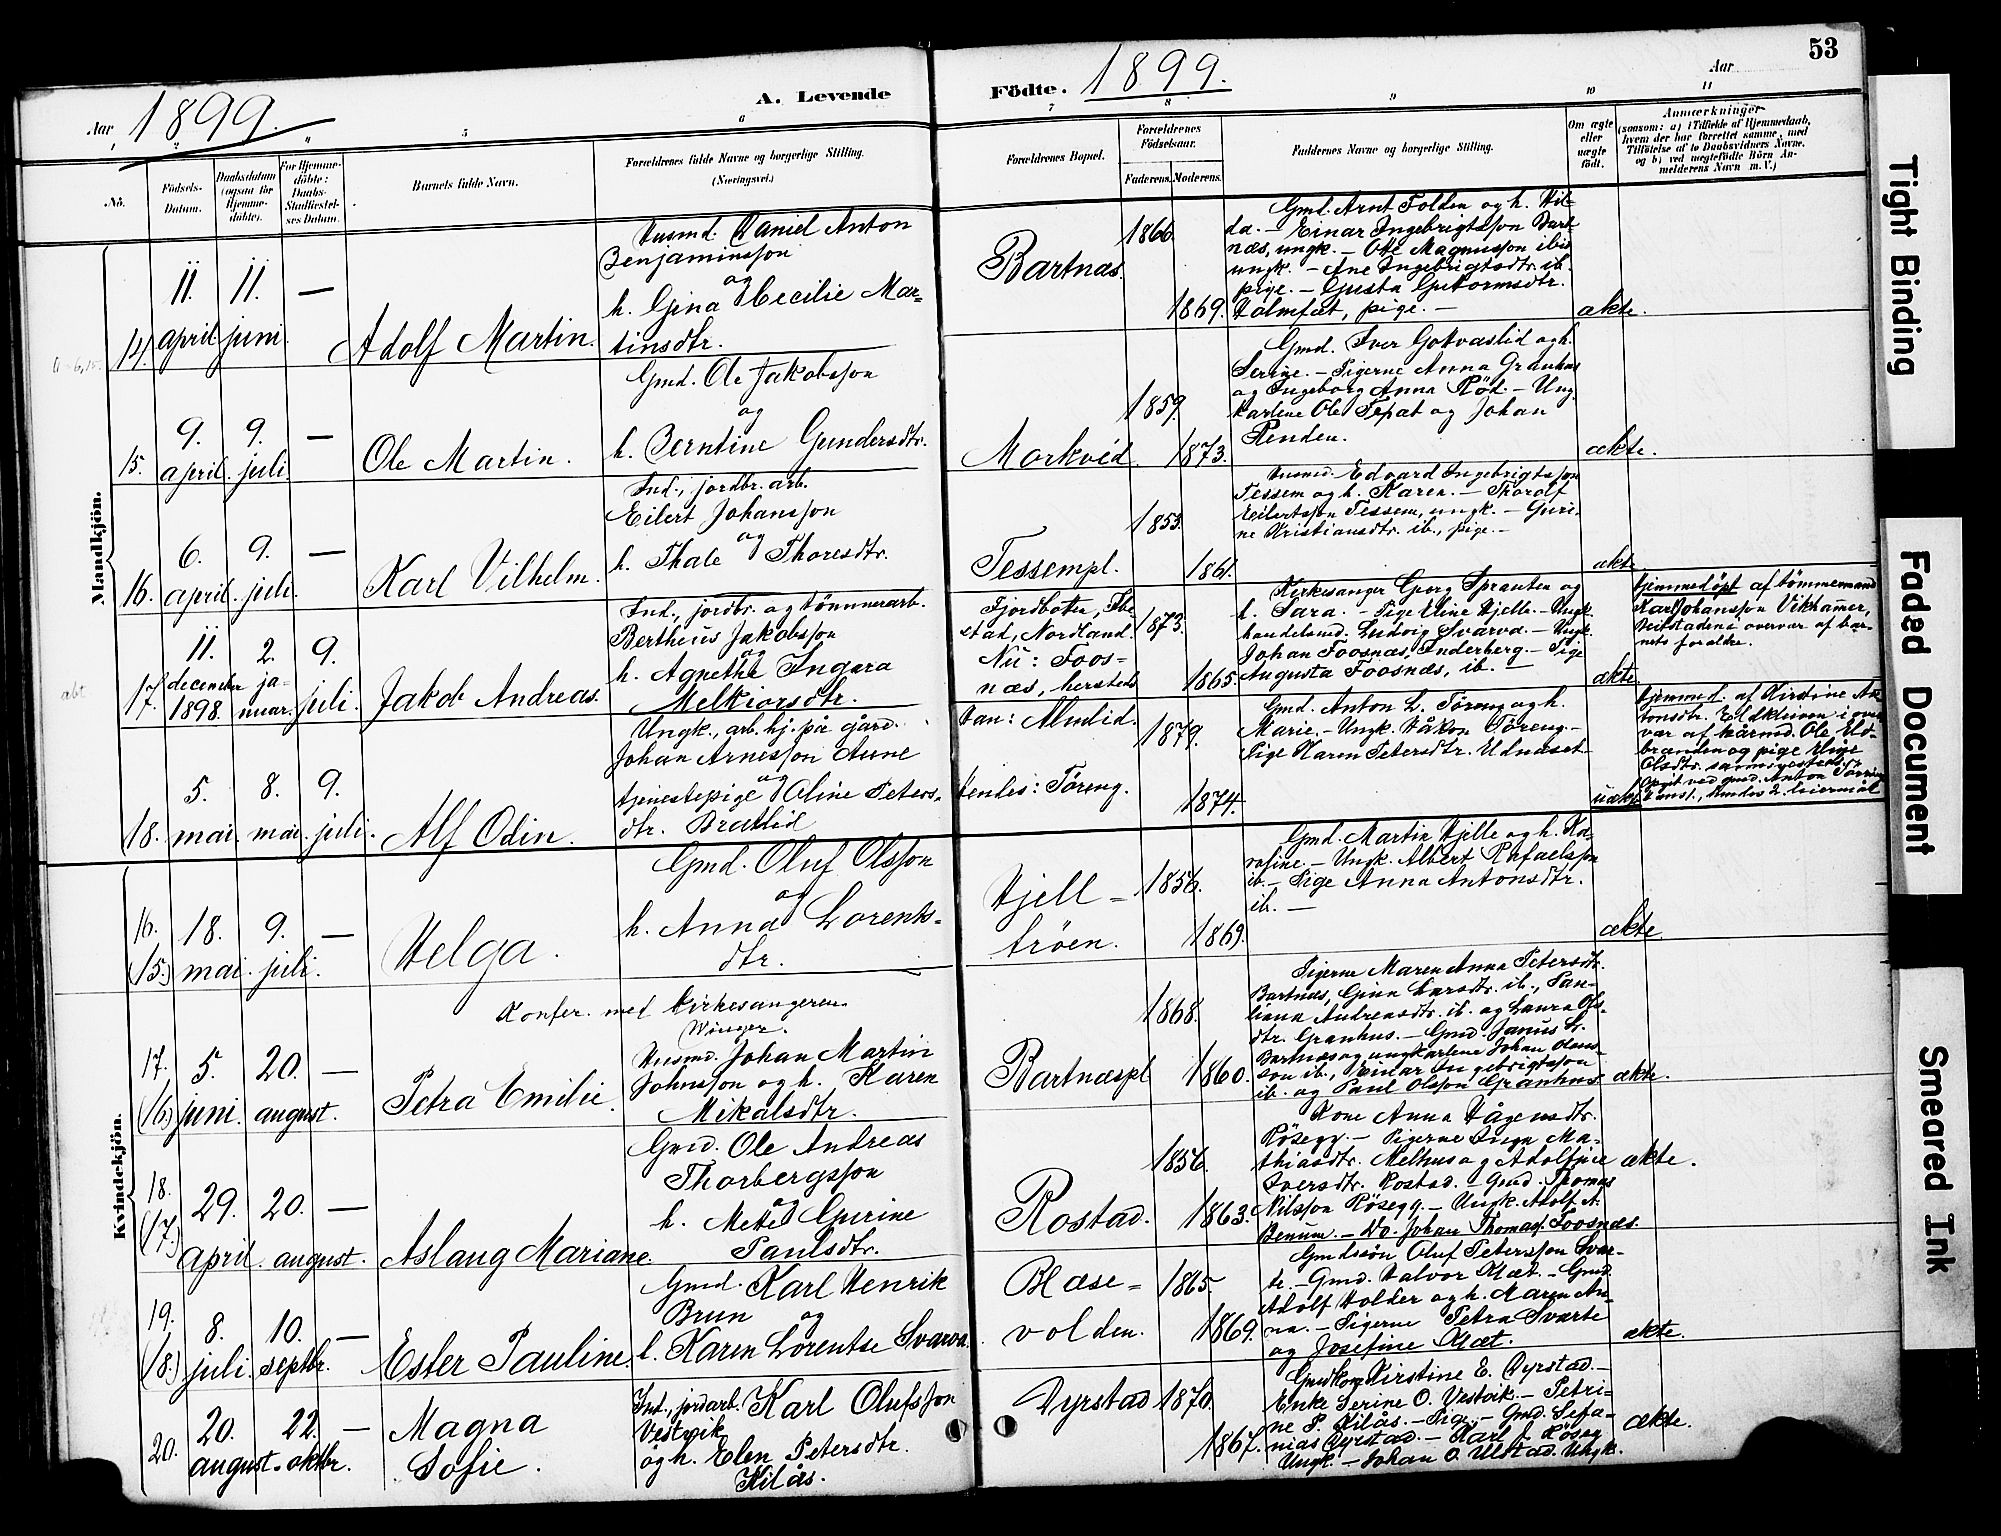 53
Aar, 1899.
A. Levende
Födte. 1899.
Aar
5
6
7
8
9
10
11
No.
Födsels-
Datum.
Daabsdatum
(ogsaa for
Hjemme-
döbte).
For Hjemme-
döbte:
Daabs-
Stadfæstel-
ses Datum.
Barnets fulde Navn.
Forældrenes fulde Navne og borgerlige Stilling.
(Næringsvei.)
Forældrenes Bopæl.
Forældrenes
Födselsaar.
Faderens. Moderens.
Faddernes Navne og borgerlige Stilling.
Om ægte
eller
uægte
födt.
Anmærkninger
(saasom: a) i Tilfælde af Hjemmedaab,
hvem der har forrettet samme, med
Tilföielse af to Daabsvidners Navne.
og b) ved uægtefödte Börn An-
melderens Navn m. V.)
Mandkjön.
14.
11.
april
11.
juni.
—
Adolf Martin.
Husmd. Daniel Anton
Benjaminsson
og
h. Gina Cecilie Mar-
tinsdtr.
Bartnæs.
1866
1869.
Gmd. Arnt Folden og h. Hil-
da. — Einar Ingebrigtsson Bart-
næs, ungk. — Ole Magnusson ibid
ungk. — Ane Ingebrigtsdtr. ib.
pige. — Gusta Guttormsdtr.
Holmfæt, pige. —
ækte.
15.
9.
april.
9.
juli.
—
Ole Martin.
Gmd. Ole Jakobsson
og
h. Berntine Gundersdtr.
Markvéd.
1859.
1873.
Gmd. Iver Gotvaslid og h.
Serine. — Pigerne Anna Granhus
og Ingeborg Anna Röd. — Ung-
karlene Ole Tepat og Johan
Renden.
ækte.
16.
6.
april.
9.
juli.
—
Karl Vilhelm.
Ind., jordbr. arb.
Eilert Johansson
og
h. Thale Thoresdtr.
Tessempl.
1853.
1861.
Husmd. Edvard Ingebrigtsson
Tessem og h. Karen. — Thoralf
Eilertsson Tessem, ungk. — Guri-
ne Kristiansdtr. ib., pige. —
ækte.
17.
11.
december
1898.
2.
ja-
nuar.
9.
juli.
Jakob Andreas.
Ind., jordbr. og tömmerarb.
Bertheus Jakobsson
og
h. Agnethe Ingara
Melkiorsdtr.
Fjordbotn, Ibe-
stad, Nordland.
Nu: Foos-
næs, hersteds
1873.
1865.
Kirkesanger Georg Sprauten og
h. Sara. — Pige Eline Hjelle. — Ungk.
handelsmd. Ludvig Svarva. — Ungk.
Johan Foosnæs, Inderberg. — Pige
Augusta Foosnæs, ib. —
ækte.
Hjemmedöpt af tömmermand
Karl Johansson Vikhamer,
Beitstaden i overvær af bar-
nets forældre.
18.
5.
mai.
8.
mai.
9.
juli.
Alf Odin.
Ungk., arb. hj. på gård.
Johan Arnesson Aune
og
tjenestepige Oline Peters-
dtr. Bratlid
Han: Almlid.
Hendes: Töreng.
1879.
1874.
Gmd. Anton L. Töreng og h.
Marie. — Ungk. Håkon Töreng. —
Pige Maren Petersdtr. Udnæset
uækte
Hjemmed. af Kirstine An-
tonsdtr. Eldkleven i over-
vær af kårmd. Ole Eld-
branden og pige Eline
Olsdtr. sammesteds.
Opgit ved gmd. Anton Töring
Hans 1., hendes 2. leiermål
Kvindekjön.
16.
(15.)
18.
mai.
9.
juli.
—
Helga.
Gmd. Oluf Olsson
og
h. Anna Lorents-
dtr.
Hjell-
tröen.
1856.
1869.
Gmd. Martin Hjelle og h. Ka-
rofine. — Ungk. Albert Rafaelsson
ib. — Pige Anna Antonsdtr.
ib. —
ækte.
Konfer. med kirkesangeren.
17.
(16.)
5.
juni.
20.
august.
—
Petra Emilie.
Husmd. Johan Martin
Johnsson og h. Karen
Mikalsdtr.
Bartnæspl
1868.
1860.
Pigerne Maren Anna Petersdtr.
Bartnæs, Gina Larsdtr. ib., Pau-
liana Andreasdtr. ib. og Laura Ols-
dtr. Granhus. — Gmd. Janus L.
Bartnæs og ungkarlene Johan Olaus-
son ib., Einar Ingebrigtsson
ib. og Paul Olsson Granhus
ækte.
18.
(17.)
29.
april.
20.
august.
—
Aslaug Mariane.
Gmd. Ole Andreas
Thorbergsson
og
h. Mette Gurine
Paulsdtr.
Rostad.
1856.
1863.
Kone Anna Hågensdtr.
Rösegg. — Pigerne Inga Ma-
thiasdtr. Melhus og Adolfine
Iversdtr. Rostad. — Gmd. Thomas
Nilsson Rösegg. — Ungk. Adolf A.
Benum. — Do. Johan Thomass. Foosnæs.
ækte.
19.
(18.)
8.
juli.
10.
septbr.
—
Ester Pauline.
Gmd. Karl Henrik
Brun og
h. Karen Lorentse Svarva.
Blæse-
volden.
1865.
1869.
Gmdssön Oluf Petersson Svar-
te. — Gmd. Halvor Klæt. — Gmd.
Adolf Holder og h. Maren An-
na. — Pigerne Petra Svarte
og Josefine Klæt.
ækte.
20.
20.
august.
22.
oktbr.
—
Magna
Sofie.
Ind., jordarb. Karl Olufsson
Vestvik
og h. Elen Petersdtr.
Kilås.
Dyrstad
1870.
1867.
Gmdkone Kirstine E. Dyrstad. —
Enke Serine O. Vestvik. — Petri-
ne P. Kilås. — Pige. — Gmd. Sefa-
nias Dyrstad. — Karl J. Röseg
Ungk. — Johan O. Ulstad. Ungk.
ækte.
Tight Binding
Faded Document
Smeared Ink